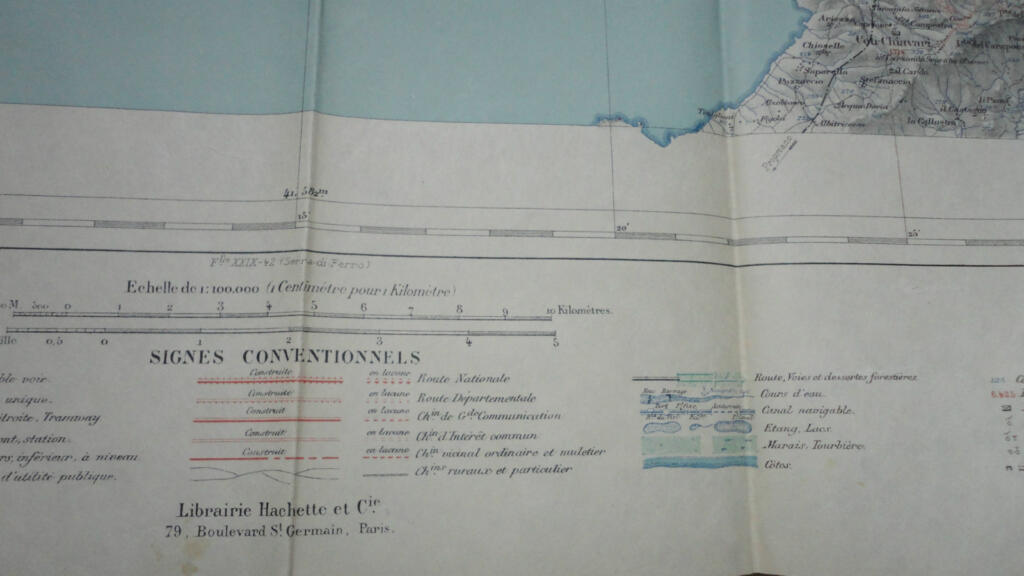 Coti Chiavari
Chioselle
Saparella
Pozzaccio
Cardo
Stefanaccia
Acqua Doria
la Cellustra
Propriano
41, 58 m
15'
20'
25'
Flle XXIX-42 (Serra di Ferro)
Echelle de 1:100.000 (1 Centimètre pour 1 Kilomètre)
M. 500 0 1 2 3 4 5 6 7 8 9 10 Kilomètres.
0,5 0 1 2 3 4 5
SIGNES CONVENTIONNELS
ble voir
unique.
étroite, Tramway
ont, station.
rs, inférieur, à niveau
d'utilité publique.
Construite en lacune Route Nationale
Construite en lacune Route Départementale
Construit en lacune Chin de Gde Communication
Construit en lacune Chin d'Intérêt commun
Construit en lacune Chin vicinal ordinaire et muletier
Chins ruraux et particulier
Route, Voies et dessertes forestières
Cours d'eau.
Canal navigable.
Etang, Lacs.
Marais, Tourbière.
Côtes.
Librairie Hachette et Cie.
79, Boulevard St Germain, Paris.